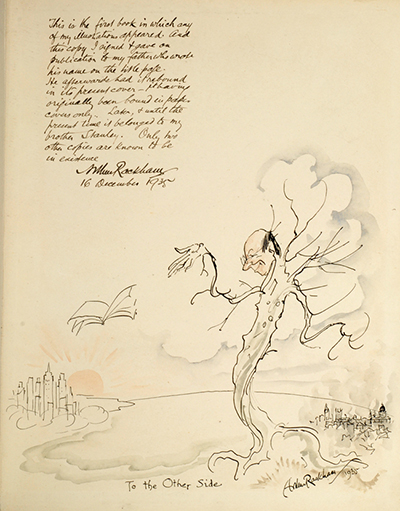 This is the first book in which any
of my illustrations appeared. And
this copy I signed & gave on
publication to my father who wrote
his name on the title page.
He afterwards had it rebound
in its present cover – it having
originally been bound in paper
covers only. Later, & until the
present time it belonged to my
brother Stanley. Only two
other copies are known to be
in existence
Arthur Rackham
16 December 1935
To the Other Side
Arthur Rackham 1935